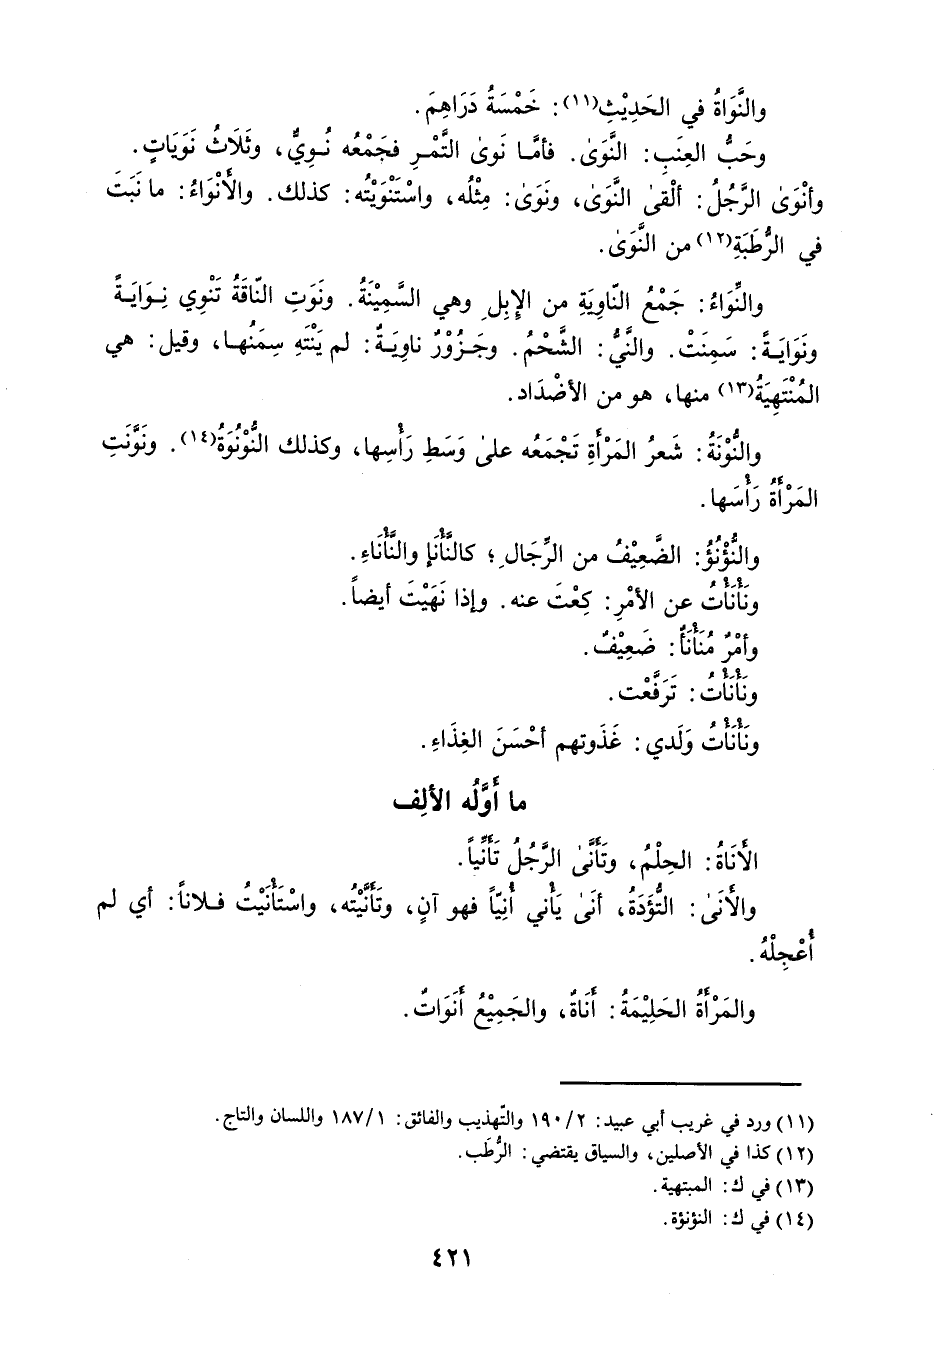 والنَّوَاةُ في الحَدِيْثِ(١١): خَمْسَةُ دَرَاهِمَ.
وحَبُّ العِنَبِ: النَّوَىٰ. فأمَّا نَوىٰ التَّمْرِ فجَمْعُه نُوِيٌّ، وثَلَاثُ نَوَيَاتٍ.
وأنْوَىٰ الرَّجُلُ: ألْقىٰ النَّوَىٰ، ونَوَىٰ: مِثْلُه، واسْتَنْوَيْتُه: كذلك. والأَنْوَاءُ: ما نَبَتَ
في الرُّطَبَةِ(١٢) من النَّوَىٰ.
والنِّوَاءُ: جَمْعُ النّاوِيَةِ من الإِبِلِ وهي السَّمِيْنَةُ. ونَوَتِ النّاقَةُ تَنْوِي نِوَايَةً
ونَوَايَةً: سَمِنَتْ. والنَّيُّ: الشَّحْمُ. وجَزُوْرٌ ناوِيَةٌ: لم يَنْتَهِ سِمَنُها، وقيل: هي
المُنْتَهِيَةُ(١٣) منها، هو من الأضْدَاد.
والنُّوْنَةُ: شَعرُ المَرْأةِ تَجْمَعُه علىٰ وَسَطِ رَأْسِها، وكذلك النُّوْنُوَةُ(١٤). ونَوَّنَتِ
المَرْأةُ رَأْسَها.
والنُّؤْنُؤُ: الضَّعِيْفُ من الرِّجَالِ؛ كالنَّأْنَإِ والنَّأْنَاءِ.
ونَأْنَأْتُ عن الأمْرِ: كِعْتَ عنه. وإذا نَهَيْتَ أيضاً.
وأمْرٌ مُنَأْنَأٌ: ضَعِيْفٌ.
ونَأْنَأْتُ: تَرَفَّعْت.
ونَأْنَأْتُ وَلَدي: غَذَوتهم أحْسَنَ الغِذَاءِ.
ما أَوَّلُه الألِف
الأَنَاةُ: الحِلْمُ، وتَأَنَّىٰ الرَّجُلُ تَأَنِّياً.
والأَنَىٰ: التُّؤَدَةُ، أنَىٰ يَأْني أُنِيّاً فهو آنٍ، وتَأَنَّيْتُه، واسْتَأْنَيْتُ فلاناً: أي لم
أُعْجِلْهُ.
والمَرْأَةُ الحَلِيْمَةُ: أنَاةٌ، والجَمِيْعُ أَنَوَاتٌ.
(١١) ورد في غريب أبي عبيد: ١٩٠/٢ والتّهذيب والفائق: ١٨٧/١ واللسان والتاج.
(١٢) كذا في الأصلين، والسياق يقتضي: الرُّطَب.
(١٣) في ك: المبتهية.
(١٤) في ك: النؤنؤة.
٤٢١